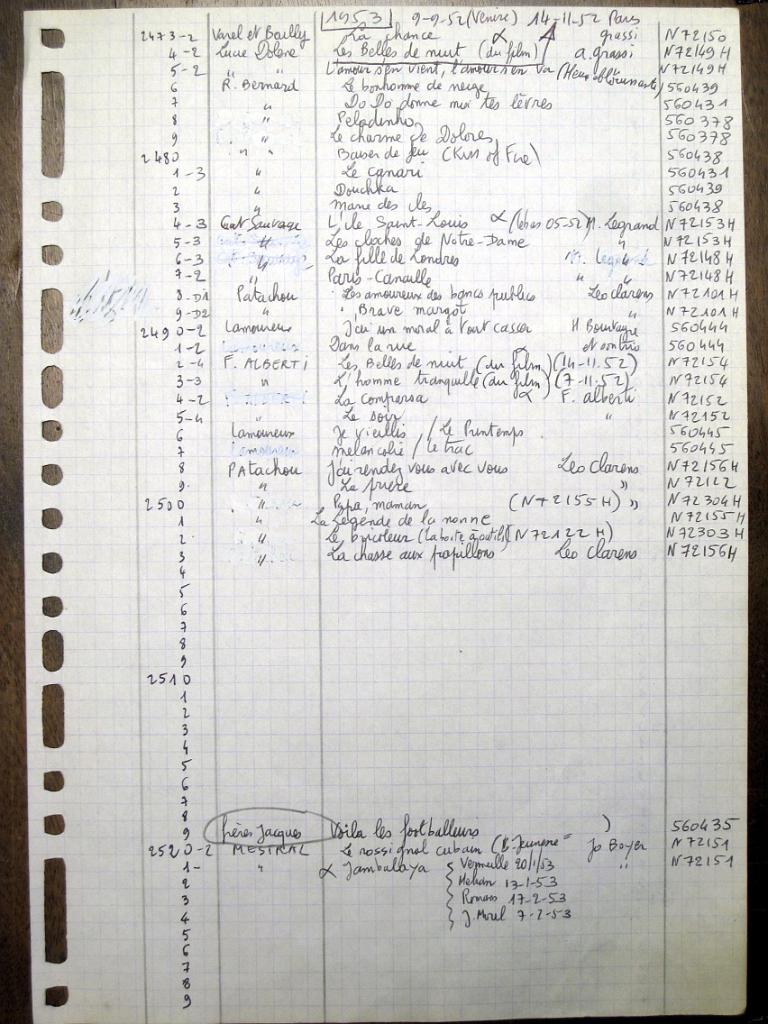 1953 9-9-52 (Venise) 14-11-52 Paris
2473-2 Varel et Bailly La chance α grassi N72150
4-2 Lucie Dolene Les Belles de nuit (du film) a. grassi N72149H
5-2 " " L'amour s'en vient, l'amour s'en va N72149H
6 R. Bernard Le bonhomme de neige 560439
7 " Do Do donne moi tes lèvres 560431
8 " Peladinho 560378
9 " Le charme de Dolores 560378
2480 " " Baiser de feu (Kiss of Fire) 560438
1-3 " Le canari 560431
2 " Douchka 560439
3 " Marie des iles 560438
4-3 Cat Sauvage L'ile Saint-Louis α (05-52) M. Legrand N72153H
5-3 " Les cloches de Notre-Dame " N72153H
6-3 " La fille de Londres " N72148H
7-2 " Paris-Canaille " " N72148H
8-D1 Patachou Les amoureux des bancs publics Leo clarens N72101H
9-D2 " Brave margot " N72101H
2490-2 Lamoureux J'ai un moral à tout casser H Bourtayre 560444
1-2 Dans la rue 560444
2-4 F. ALBERTI Les Belles de nuit (du film) (14-11.52) N72154
3-3 " L'homme tranquille (du film) (7-11.52) N72154
4-2 La comparsa α F. alberti N72152
5-4 " Le soir " N72152
6 Lamoureux Je vieillis / Le Printemps 560445
7 melancolie / Le trac 560445
8 PATachou J'ai rendez vous avec vous Leo clarens N72156H
9 " La prière " N72122
2500 " Papa, maman (N72155H) " N72304H
1 " La Legende de la nonne N72155H
2 " Le bricoleur (La boite à outils) (N72122H) N72303H
3 " La chasse aux papillons Leo clarens N72156H
4
5
6
7
8
9
2510
1
2
3
4
5
6
7
8
9 frères Jacques Voila les footballeurs ) 560435
2520-2 MESTRAL Le rossignol cubain Jo Boyer N72151
1- " α Jambalaya { Vermeille 20/1/53 " N72151
2 13-1-53
3 Romans 17-2-53
4 J. Morel 7-2-53
5
6
7
8
9